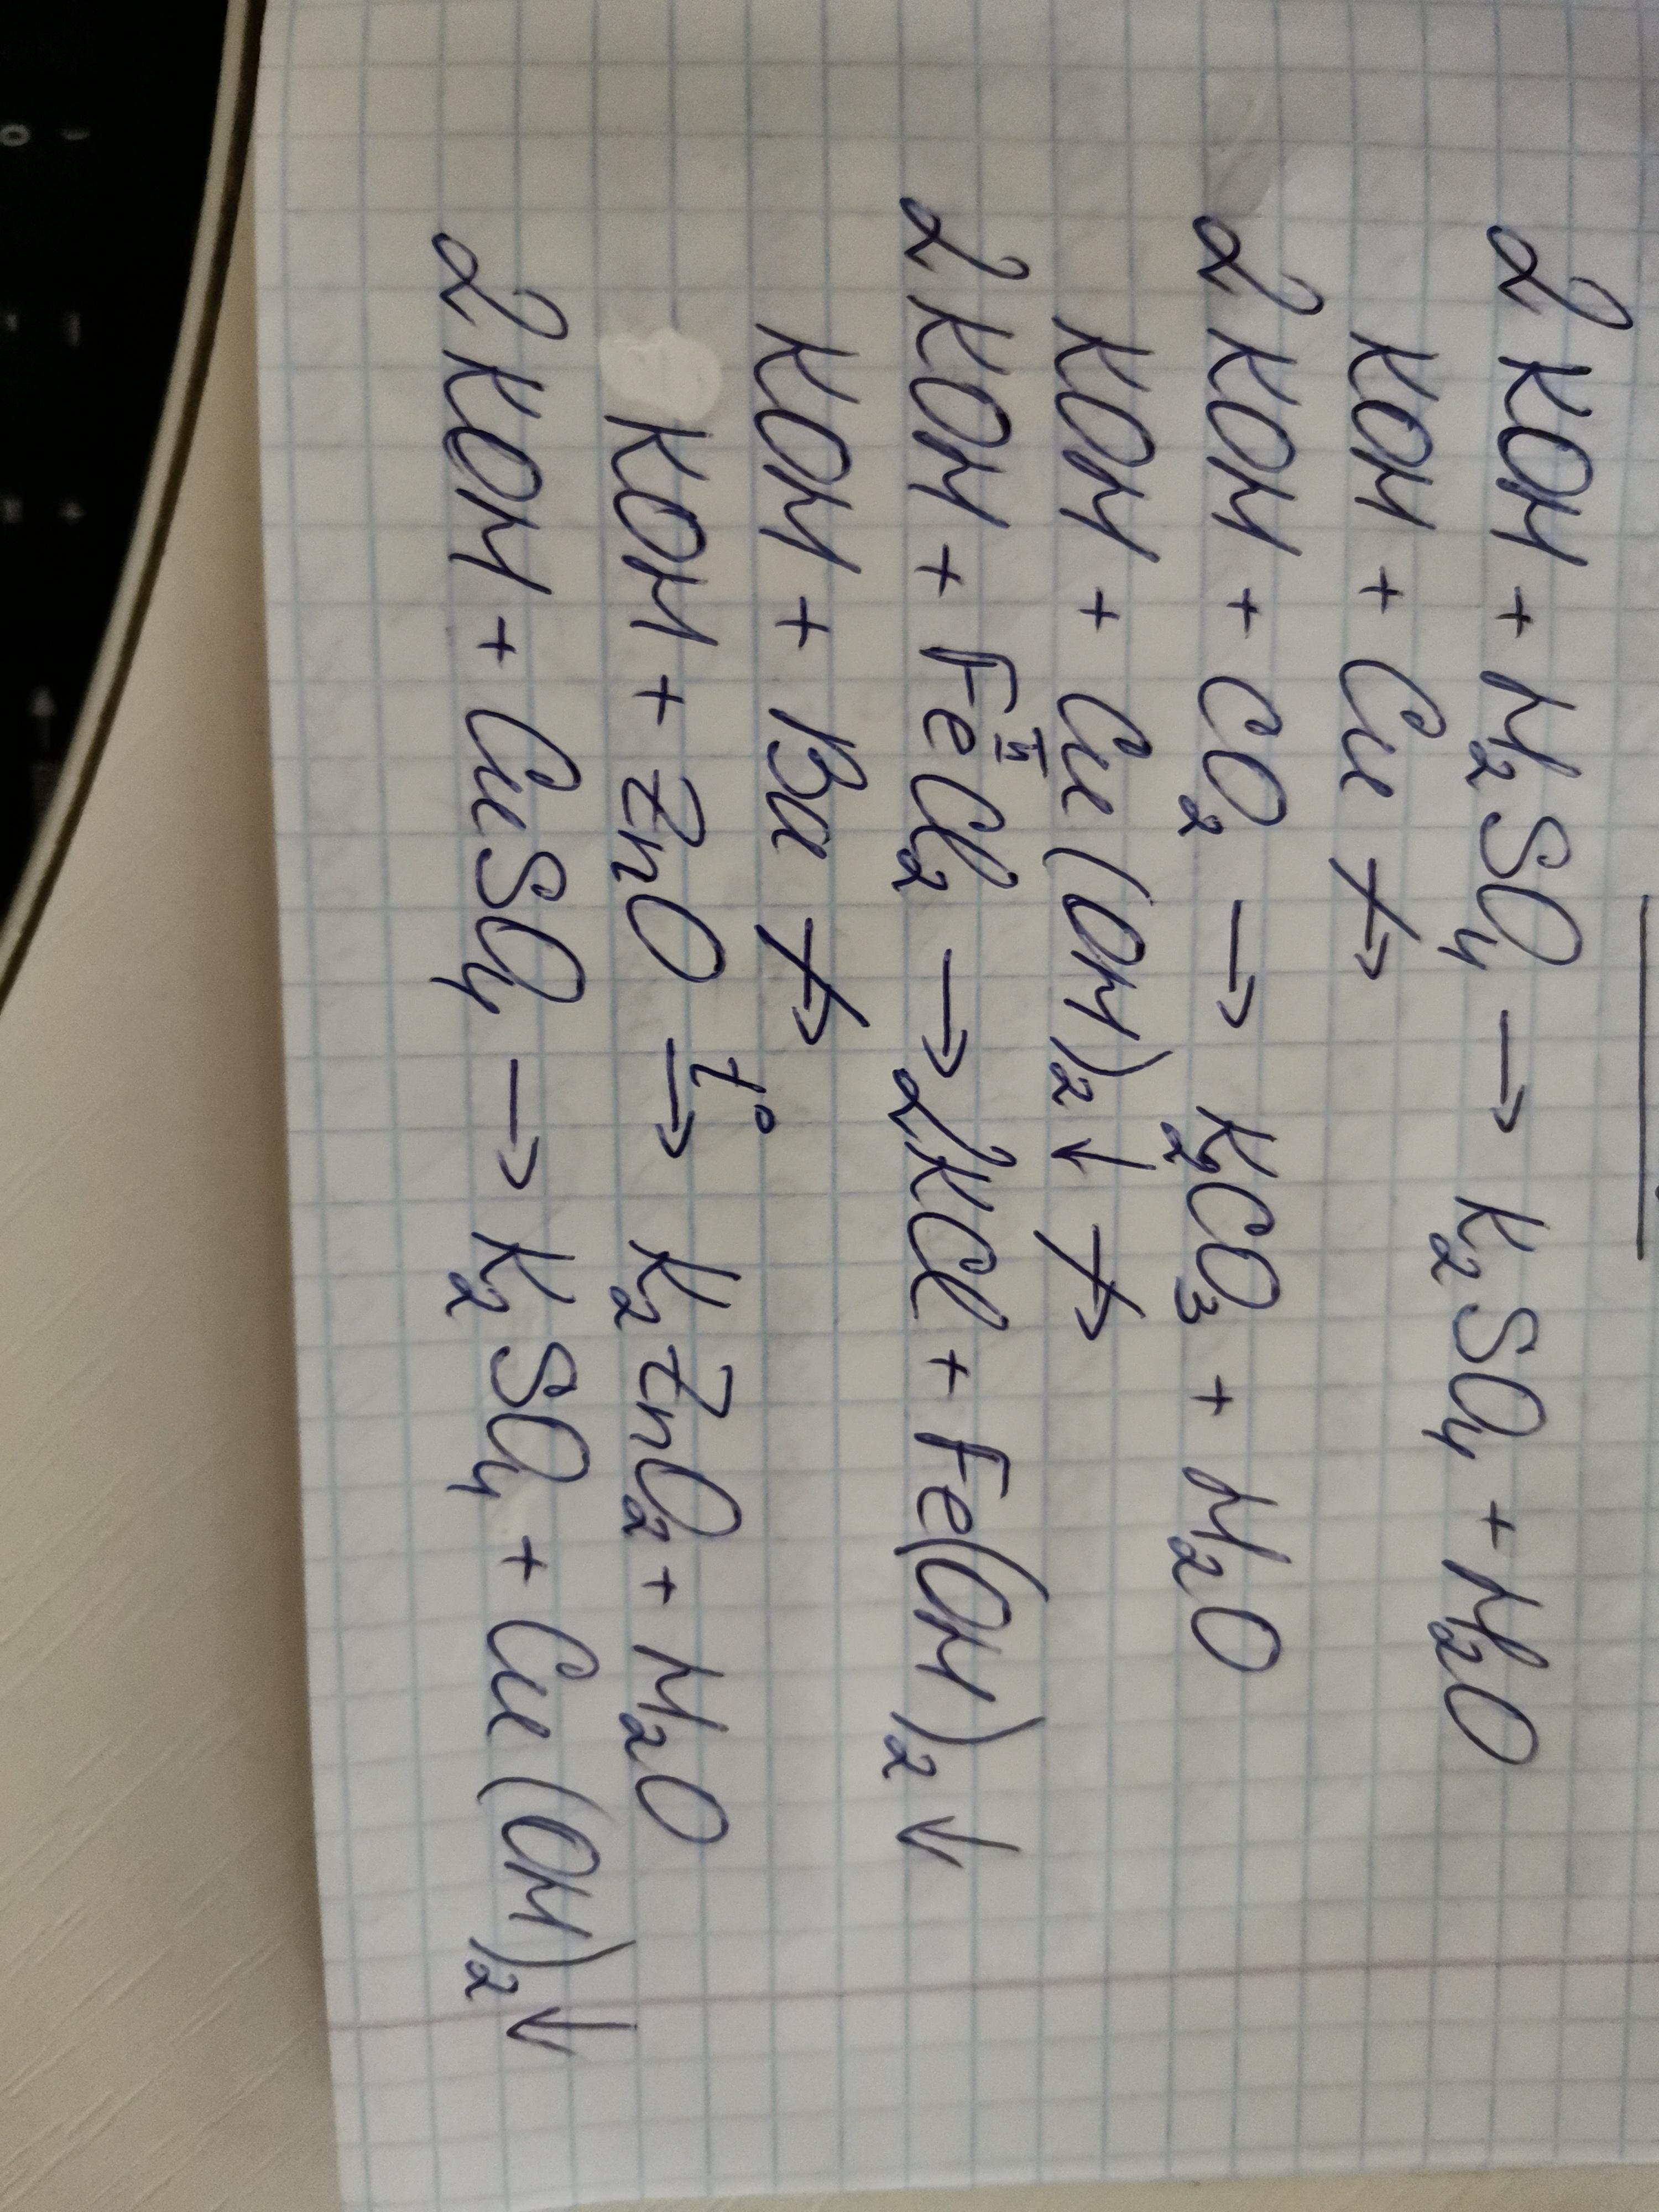 2KOH + H₂SO₄ → K₂SO₄ + H₂O
KOH + Cu ↛
2KOH + CO₂ → K₂CO₃ + H₂O
KOH + Cu(OH)₂↓ ↛
2KOH + FeᴵᴵCl₂ → 2KCl + Fe(OH)₂↓
KOH + Ba ↛
KOH + ZnO →t° K₂ZnO₂ + H₂O
2KOH + CuSO₄ → K₂SO₄ + Cu(OH)₂↓